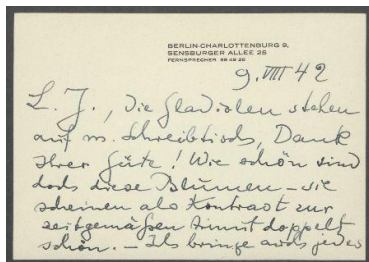 BERLIN-CHARLOTTENBURG 9,
SENSBURGER ALLEE 26
FERNSPRECHER 99 49 26
9. VIII 42
L. J., die Gladiolen stehen
auf m. Schreibtisch, Dank
Ihrer Güte! Wie schön sind
doch diese Blumen – sie
scheinen als Kontrast zur
zeitgemäßen Armut doppelt
schön. – Ich bringe auch jeden